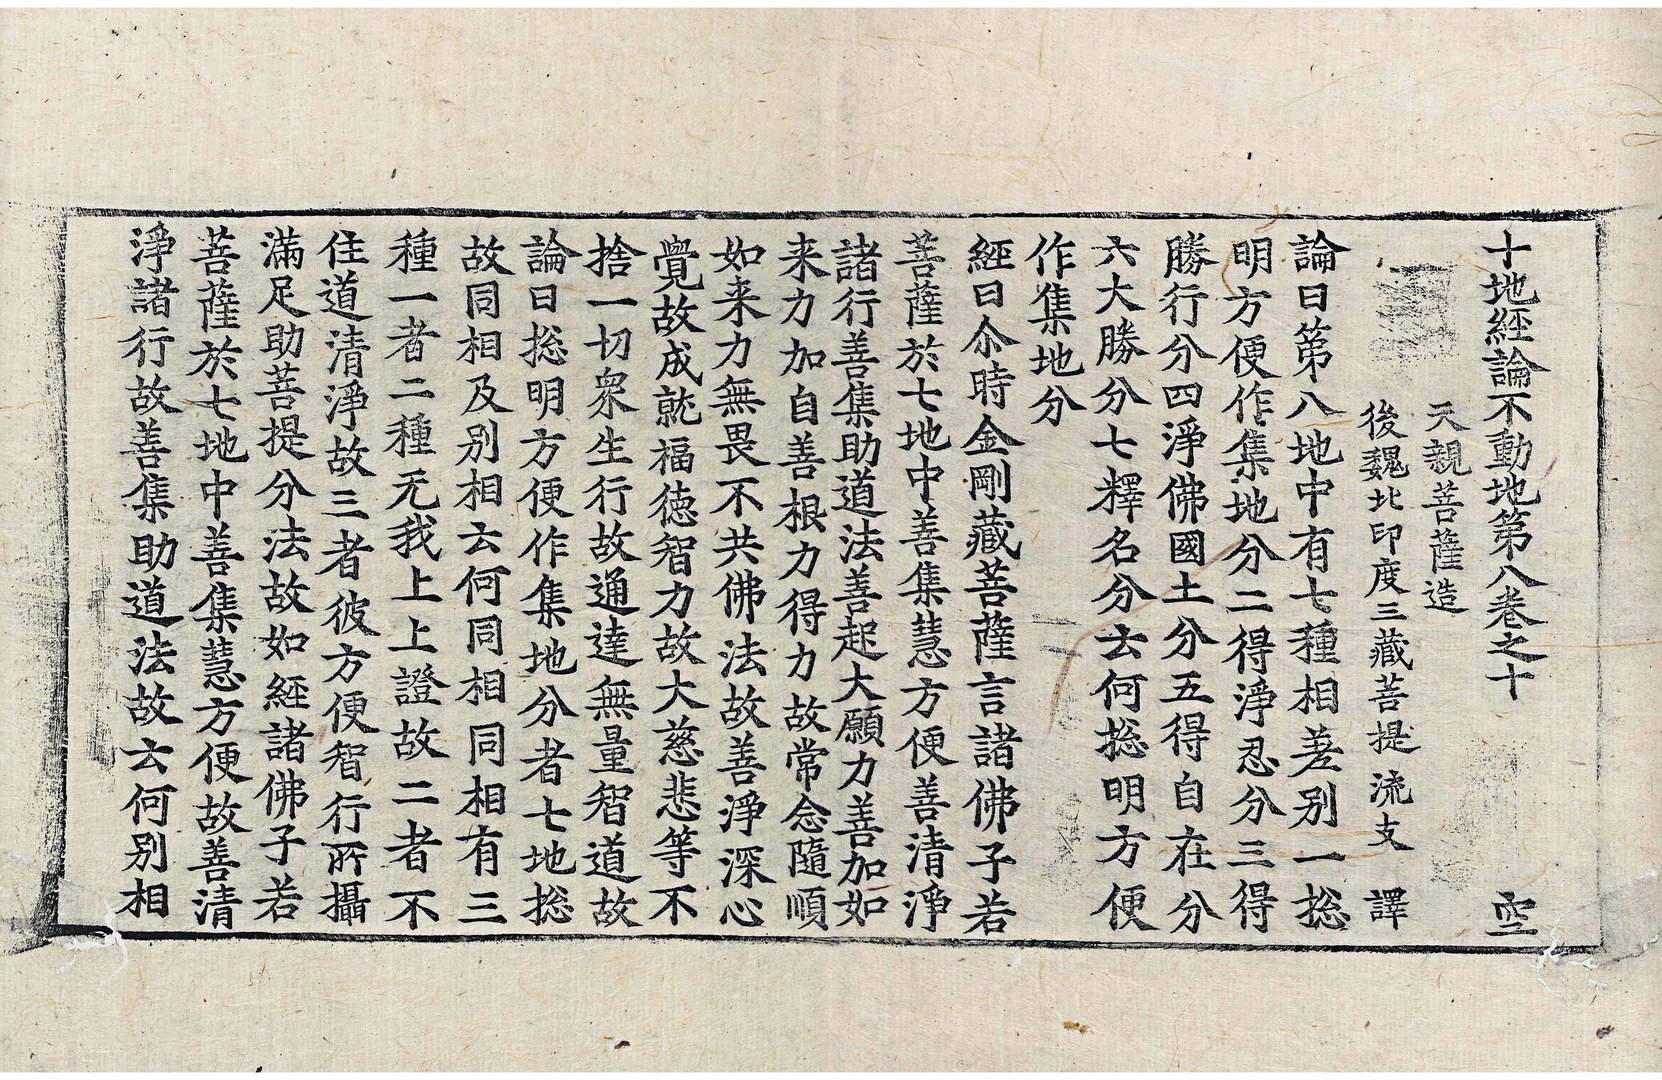 十地經論不動地第八卷之十 空
天親菩薩造
後魏北印度三藏菩提流支 譯
論曰第八地中有七種相差别一揔
明方便作集地分二得淨忍分三得
勝行分四淨佛國土分五得自在分
六大勝分七釋名分云何揔明方便
作集地分
經曰尒時金剛藏菩薩言諸佛子若
菩薩於七地中善集慧方便善清淨
諸行善集助道法善起大願力善加如
来力加自善根力得力故常念隨順
如来力無畏不共佛法故善淨深心
覺故成就福徳智力故大慈悲等不
捨一切衆生行故通達無量智道故
論曰揔明方便作集地分者七地揔
故同相及别相云何同相同相有三
種一者二種无我上上證故二者不
住道清淨故三者彼方便智行所攝
滿足助菩提分法故如經諸佛子若
菩薩於七地中善集慧方便故善清
淨諸行故善集助道法故云何别相